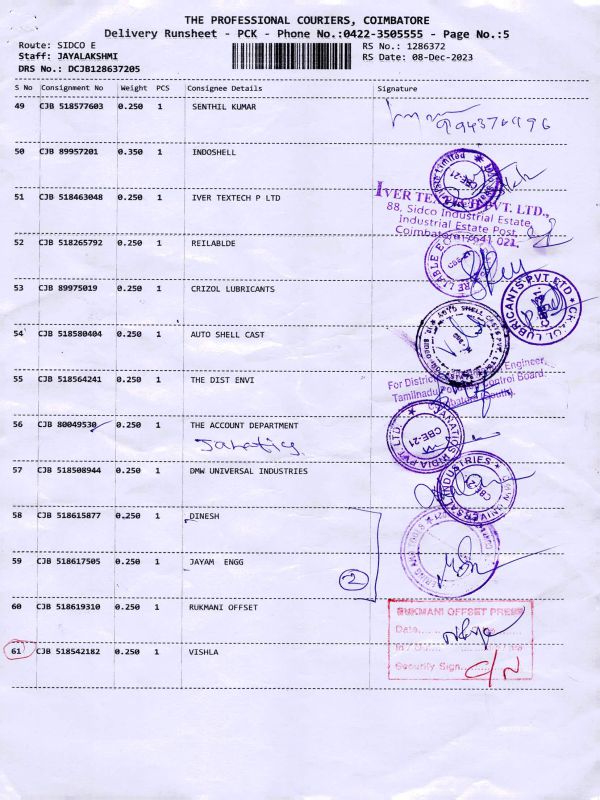 THE PROFESSIONAL COURIERS, COIMBATORE
Delivery Runsheet - PCK - Phone No.:0422-3505555 - Page No.:5
Route: SIDCO E RS No.: 1286372
Staff: JAYALAKSHMI RS Date: 08-Dec-2023
DRS No.: DCJB128637205
S No Consignment No Weight PCS Consignee Details Signature
49 CJB 518577603 0.250 1 SENTHIL KUMAR
50 CJB 89957201 0.350 1 INDOSHELL
CBE-21
51 CJB 518463048 0.250 1 IVER TEXTECH P LTD
PVT. LTD.,
88, Sidco Industrial Estate,
Industrial Estate Post,
Coimbatore 641 021.
52 CJB 518265792 0.250 1 REILABLDE
53 CJB 89975019 0.250 1 CRIZOL LUBRICANTS
LUBRICANTS PVT. LTD
54 CJB 518580404 0.250 1 AUTO SHELL CAST
55 CJB 518564241 0.250 1 THE DIST ENVI
Engineer,
For District
Tamilnadu Control Board
56 CJB 80049530 0.250 1 THE ACCOUNT DEPARTMENT
Janatics
JANATICS INDIA PVT LTD.
CBE-21
57 CJB 518508944 0.250 1 DMW UNIVERSAL INDUSTRIES
UNIVERSAL INDUSTRIES
58 CJB 518615877 0.250 1 DINESH
59 CJB 518617505 0.250 1 JAYAM ENGG
2
60 CJB 518619310 0.250 1 RUKMANI OFFSET
RUKMANI OFFSET PRESS
Date
61 CJB 518542182 0.250 1 VISHLA
Security Sign